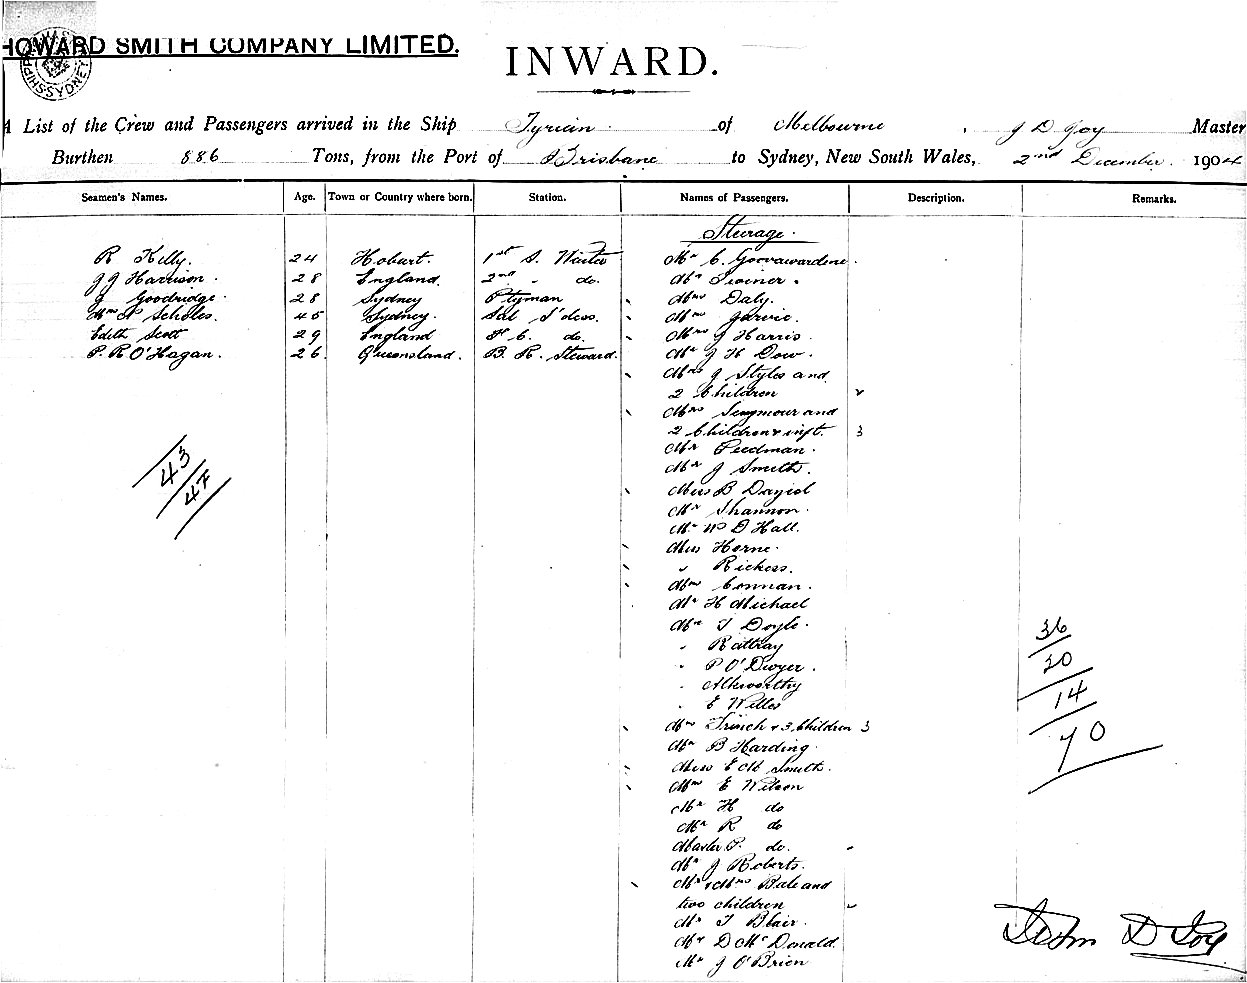 HOWARD SMITH COMPANY LIMITED.
INWARD.
A List of the Crew and Passengers arrived in the Ship Tyrian of Melbourne, J D Joy Master
Burthen 886 Tons, from the Port of Brisbane to Sydney, New South Wales, 2nd December 1904
Seamen's Names. Age. Town or Country where born. Station. Names of Passengers. Description. Remarks.
Steerage.
R Kelly. 24 Hobart. 1st S. Waiter Mr C. Goonawardene.
J J Harrison. 28 England. 2nd " do. Mr
J Goodridge. 28 Sydney Ptyman Mrs Daly.
Mrs Scholes. 45 Sydney. Sal S'dess. Mrs Jarvie.
Edith Scott 29 England F. C. do. Mrs J Harris
P. R O'Hagan. 26 Queensland. B. R. Steward. Mr J H Dow.
Mrs J Styles and
2 Children 2
Mrs Seymour and
2 Children & inft. 3
Mr
Mr J Smith.
Miss B Daniel
Mr Shannon.
Mr W D Hall.
Miss Horne.
" Rickess.
Mrs Connan.
Mr H Michael
Mr T Doyle.
" Rattray
" P O'Dwyer.
" Alkworthy
" E Willes
Mrs Trinch & 3 Children 3
Mr B Harding.
Miss E M Smith.
Mrs E Wilson
Mr H do
Mr R do
Master P. do.
Mr J Roberts.
Mr & Mrs Bale and
two children
Mr T Blair.
Mr D McDonald.
Mr J O'Brien
43
47
36
20
14
70
John D Joy